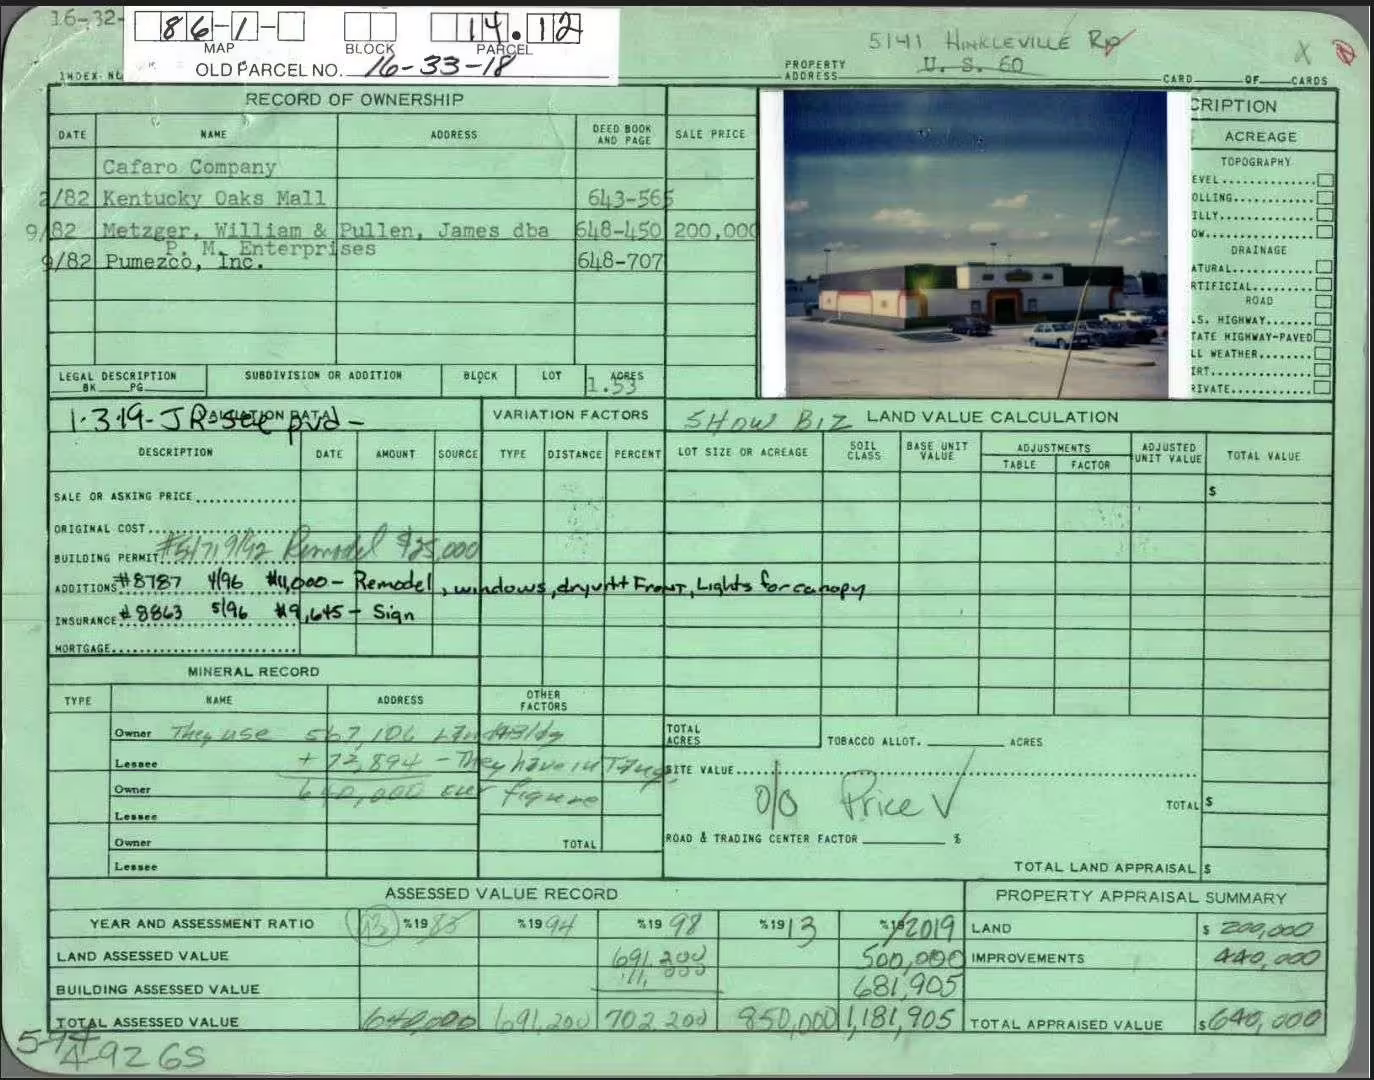 16-32-
86-1-
14.12
MAP BLOCK PARCEL
OLD PARCEL NO. 16-33-18
5141 HINKLEVILLE RD
PROPERTY ADDRESS U. S. 60
X
INDEX NO
CARD OF CARDS
RECORD OF OWNERSHIP
CRIPTION
DATE NAME ADDRESS DEED BOOK AND PAGE SALE PRICE
ACREAGE
Cafaro Company
TOPOGRAPHY
EVEL
2/82 Kentucky Oaks Mall 643-565
OLLING
ILLY
9/82 Metzger, William & Pullen, James dba 648-450 200,000
P. M. Enterprises
OW
DRAINAGE
9/82 Pumezco, Inc. 648-707
ATURAL
RTIFICIAL
ROAD
.S. HIGHWAY
TATE HIGHWAY-PAVED
LL WEATHER
IRT
RIVATE
LEGAL DESCRIPTION BK PG
SUBDIVISION OR ADDITION BLOCK LOT ACRES
1.53
1-3-19- JR-see pvd-
VALUATION DATA
VARIATION FACTORS
SHOW BIZ LAND VALUE CALCULATION
DESCRIPTION DATE AMOUNT SOURCE TYPE DISTANCE PERCENT
LOT SIZE OR ACREAGE SOIL CLASS BASE UNIT VALUE ADJUSTMENTS TABLE FACTOR ADJUSTED UNIT VALUE TOTAL VALUE
SALE OR ASKING PRICE
$
ORIGINAL COST
BUILDING PERMIT Remodel $25,000
ADDITIONS #8787 4/96 $11,000- Remodel, windows, dryvitt Front, Lights for canopy
INSURANCE #8863 5/96 $9,645- Sign
MORTGAGE
MINERAL RECORD
TYPE NAME ADDRESS OTHER FACTORS
Owner They use 567,106 Land & Bldg
TOTAL ACRES TOBACCO ALLOT. ACRES
Lessee + 72,894 - They have in
SITE VALUE
Owner 640,000 our figure
O/O Price √
TOTAL $
Lessee
Owner TOTAL
ROAD & TRADING CENTER FACTOR %
Lessee
TOTAL LAND APPRAISAL $
ASSESSED VALUE RECORD
PROPERTY APPRAISAL SUMMARY
YEAR AND ASSESSMENT RATIO 93 %1983 %1994 %1998 %1913 %19/2019
LAND $ 200,000
LAND ASSESSED VALUE 691,200 500,000
IMPROVEMENTS 440,000
BUILDING ASSESSED VALUE 11,000 681,905
TOTAL ASSESSED VALUE 640,000 691,200 702,200 850,000 1,181,905
TOTAL APPRAISED VALUE $640,000
4-92 GS